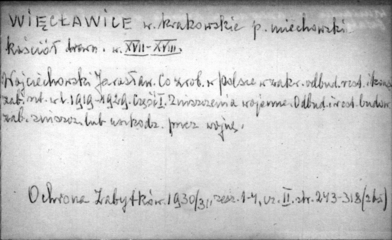 WIĘCŁAWICE w. krakowskie p. miechowski
kościół drewn. w. XVII-XVIII.
Wojciechowski Jarosław. Co zrob. w Polsce w zakr. odbud. rest. i kons.
zab. szt. w l. 1919-1929. Część I. Zniszczenia wojenne. Odbud. i rest. budow.
zab. zniszcz. lub uszkodz. przez wojnę.
Ochrona Zabytków. 1930/31, zesz. 1-4, cz. II. str. 243-318